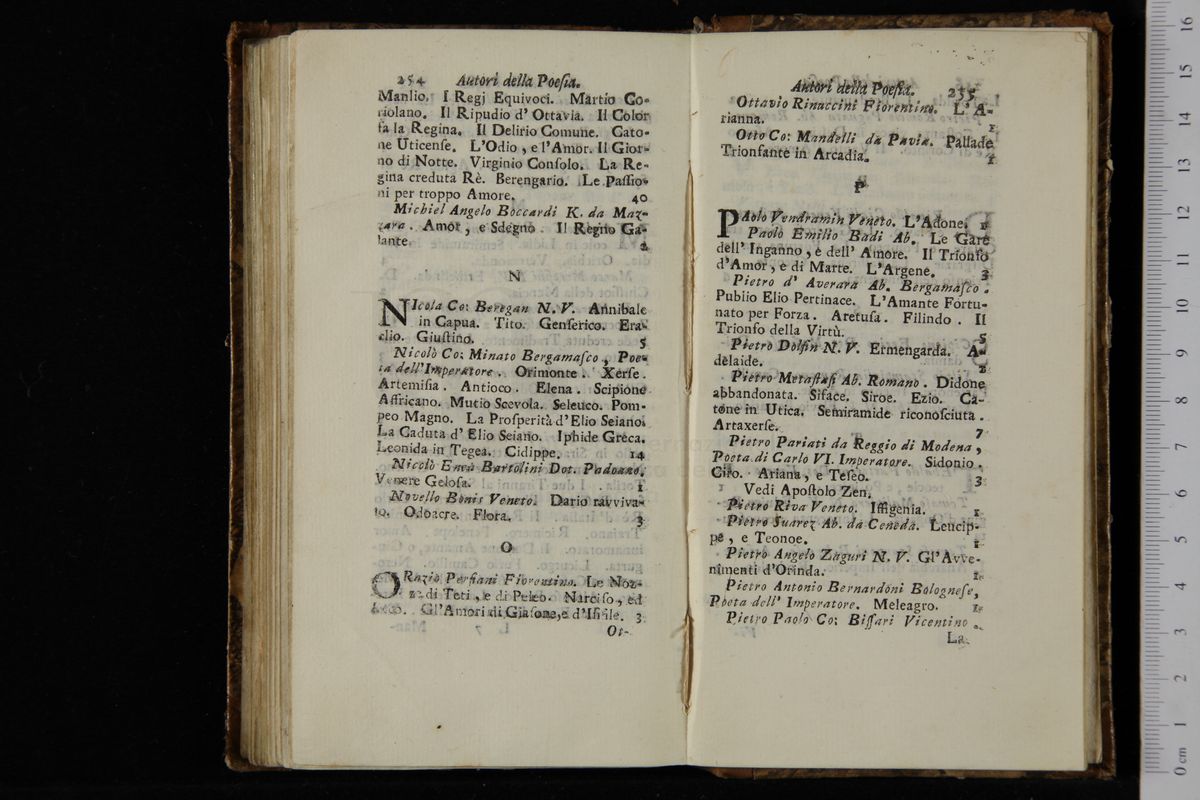 254 Autori della Poeſia.
Manlio. I Regj Equivoci. Martio Co-
riolano. Il Ripudio d' Ottavia. Il Color
fa la Regina. Il Delirio Comune. Cato-
ne Uticenſe. L'Odio, e l'Amor. Il Gior-
no di Notte. Virginio Conſolo. La Re-
gina creduta Rè. Berengario. Le Paſſio-
ni per troppo Amore. 40
Michiel Angelo Boccardi K. da Maz-
zara. Amor, e Sdegno. Il Regno Ga-
lante. 2
N
NIcola Co: Beregan N. V. Annibale
in Capua. Tito. Genſerico. Era-
clio. Giuſtino. 5
Nicolò Co: Minato Bergamaſco, Poe-
ta dell'Imperatore. Orimonte. Xerſe.
Artemiſia. Antioco. Elena. Scipione
Affricano. Mutio Scevola. Seleuco. Pom-
peo Magno. La Proſperità d'Elio Seiano.
La Caduta d' Elio Seiano. Iphide Greca.
Leonida in Tegea. Cidippe. 14
Nicolò Eneà Bartolini Dot. Padoano.
Venere Geloſa. 1
Novello Bonis Veneto. Dario ravviva-
to. Odoacre. Flora. 3
O
ORazio Perſiani Fiorentino. Le Noz-
ze di Teti, e di Peleo. Narciſo, ed
Gl'Amori di Giaſone, e d'Iſifile. 3
Ot-
Autori della Poeſia. 255
Ottavio Rinuccini Fiorentino. L'A-
rianna. 1
Otto Co: Mandelli da Pavia. Pallade
Trionfante in Arcadia. 1
P
PAolo Vendramin Veneto. L'Adone. 1
Paolo Emilio Badi Ab. Le Gare
dell' Inganno, e dell' Amore. Il Trionfo
d'Amor, e di Marte. L'Argene. 3
Pietro d' Averara Ab. Bergamaſco.
Publio Elio Pertinace. L'Amante Fortu-
nato per Forza. Aretuſa. Filindo. Il
Trionfo della Virtù. 5
Pietro Dolfin N. V. Ermengarda. A-
delaide. 2
Pietro Metaſtaſi Ab. Romano. Didone
abbandonata. Siface. Siroe. Ezio. Ca-
tone in Utica. Semiramide riconoſciuta.
Artaxerſe. 7
Pietro Pariati da Reggio di Modena,
Poeta di Carlo VI. Imperatore. Sidonio.
Ciro. Ariana, e Teſeo. 3
Vedi Apoſtolo Zen.
Pietro Riva Veneto. Iffigenia. 1
Pietro Suarez Ab. da Ceneda. Leucip-
pe, e Teonoe. 1
Pietro Angelo Zaguri N. V. Gl'Avve-
nimenti d'Orinda. 1
Pietro Antonio Bernardoni Bologneſe,
Poeta dell' Imperatore. Meleagro. 1
Pietro Paolo Co: Biſſari Vicentino.
La
0 cm 1 2 3 4 5 6 7 8 9 10 11 12 13 14 15 16